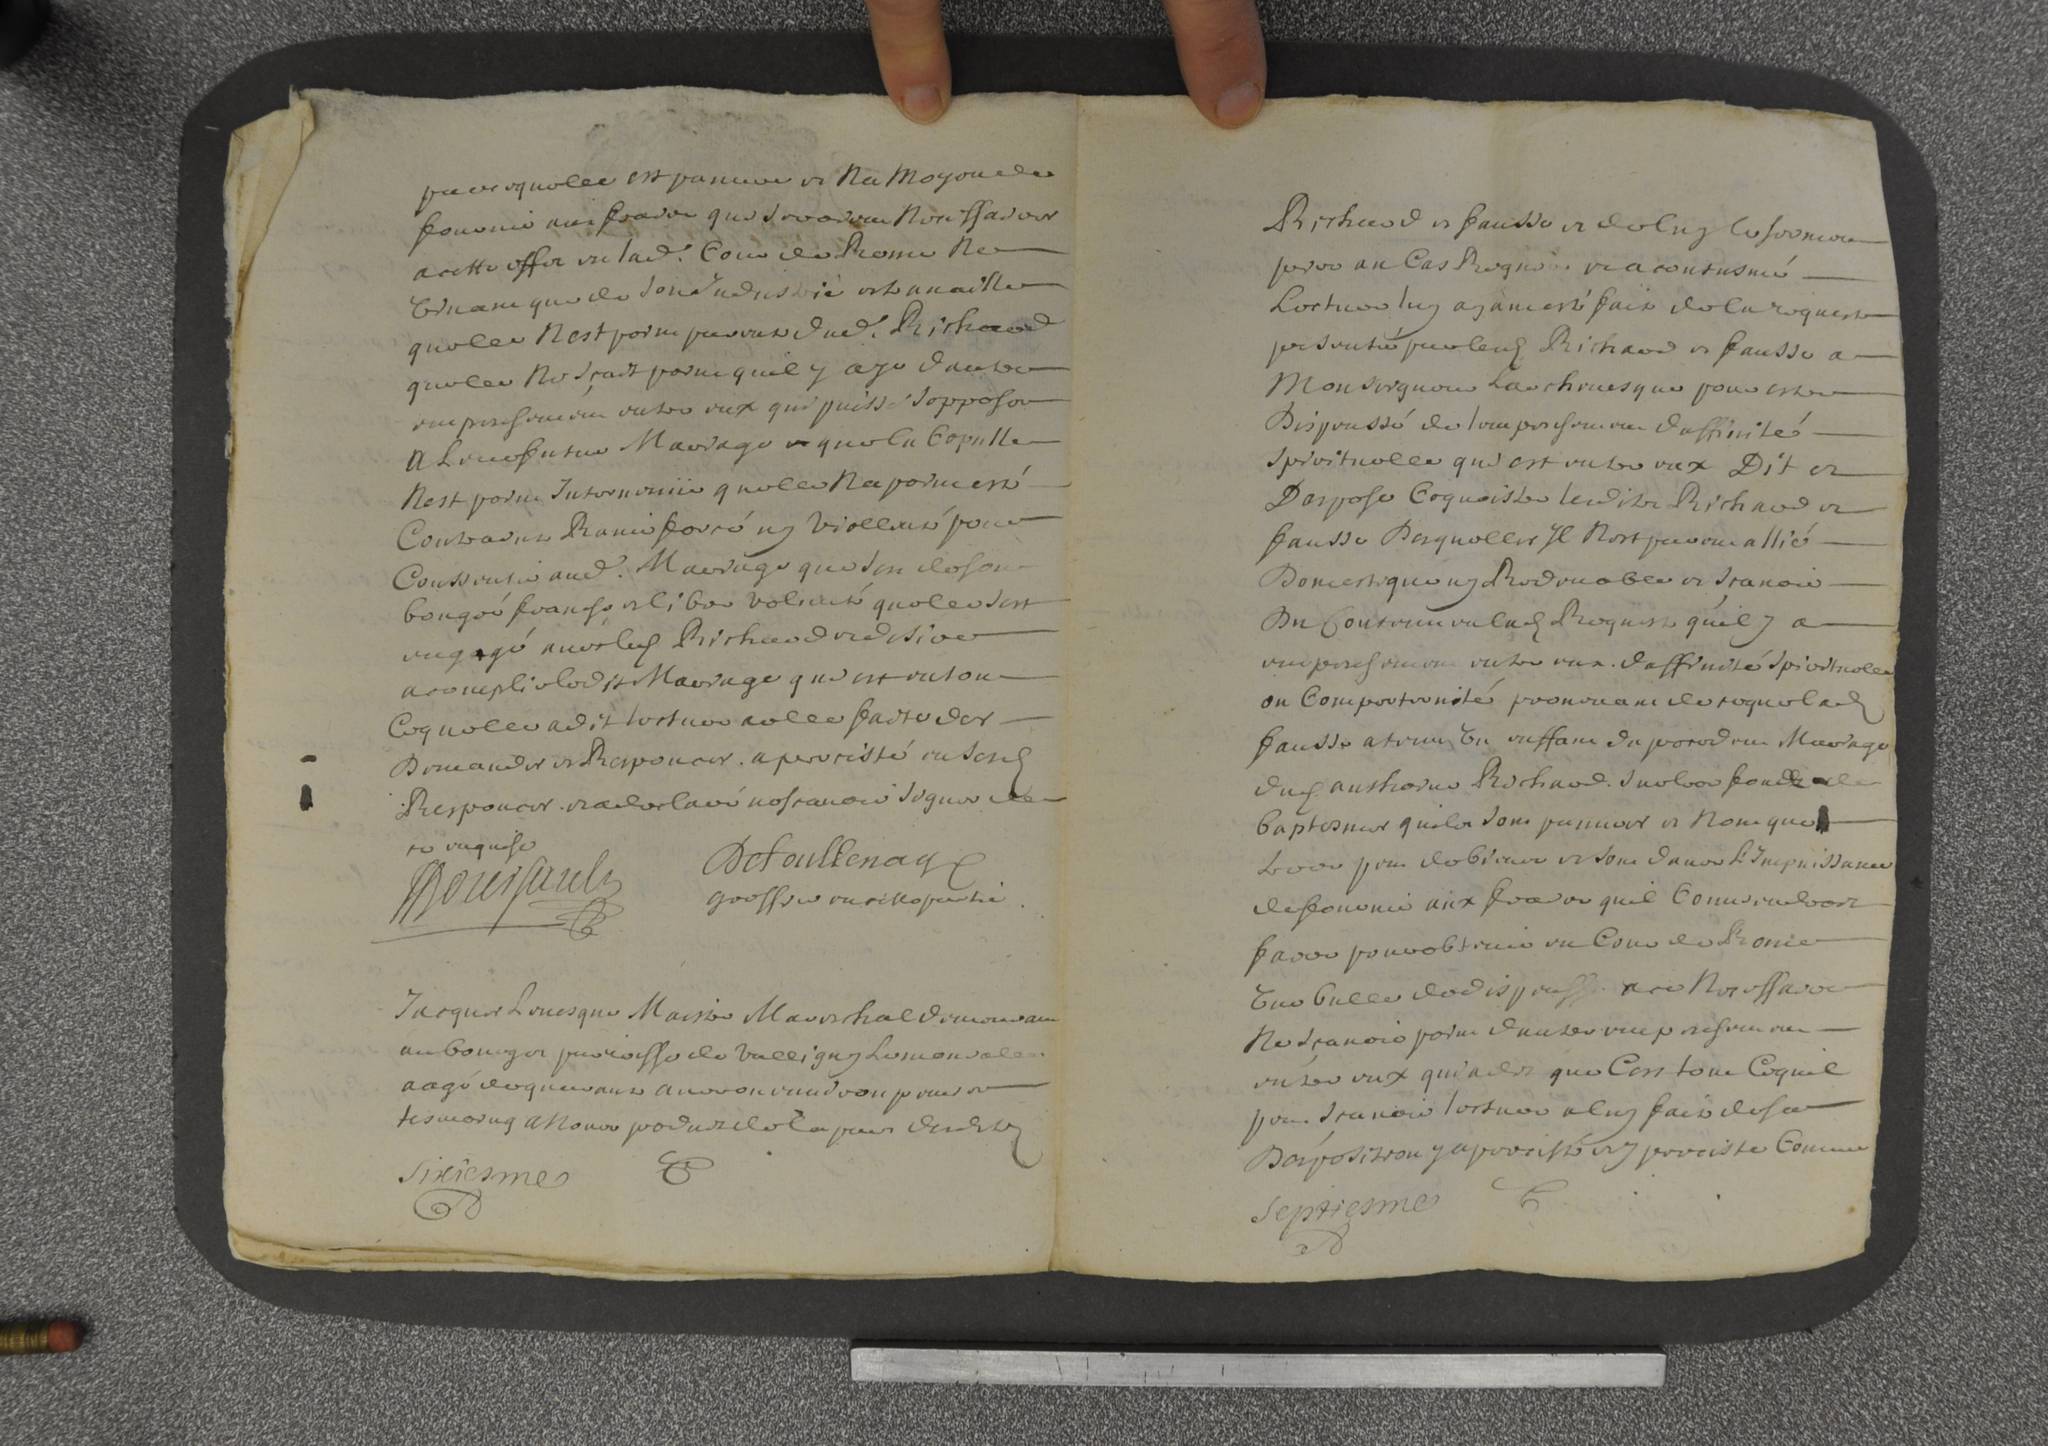 parce quelle est pauvre et Na Moyen de
fournir aux fraix quil convient Necessaires
a cette effet en lad. Cour de Rome Ne
Vivant que de son Industrie et travaille
quelle Nest point parente dud. Richard
quelle Ne scait point quil y aye dautre
empeschement entre eux qui puisse sopposer
A Leur futur Mariage et que la Copulle
Nest point Intervenüe quelle Na point esté
Contrainte Ravie forcé ny Viollenté pour
Conssentir aud. Mariage que sest de son
bongré franche et libre Volonté quelle sest
engagé avec led Richard et desire
acomplir ledit Mariage qui est tout
Ce quelle a dit lecture a elle faite des
Demandes et Responces. a perciste en sesd
Responces. et a declaré ne scavoir signer de
ce enquise
Defoullenay
greffier en cette partie.
Jacques Levesque Maistre Mareschal demeurant
au bourg et paroisse de Valligny Lemonial
aagé de quarante ans ou environ premier
tesmoing a Nous produit de la part desdits
Sixiesme
Richard et fausse et de luy le serment
pris au Cas Requis et acoustumé
Lecture luy ayant esté faite de la requeste
presentée par lesd Richard et fausse a
Monseigneur Larchevesque pour estre
Dispenssé de lempeschement daffinité
spirituelle qui est entre eux Dit et
Depose Cognoistre lesdits Richard et
fausse Desquelles Il Nest parent allié
Domestique ny Redevable et scavoir
Du Contenu en lad Requeste quil y a
empeschement entre eux. daffinité spirituelle
ou Compaternité provenant de ce que lad
fausse a tenu Un enffant du precedent Mariage
dud anthoine Richard. sur les fonds de
baptesmes quils sont pauvres et Nont que
tres peu de biens et sont dans L'Impuissance
de fournir aux fraix quil Conviendroit
faire pour obtenir en Cour de Rome
Une bulle de dispensse a ce Necessaire
Ne scavoir point dautre empeschement
entre eux qui est que Cest tout Ce quil
peut scavoir lecture a luy faite de sa
Deposition y a perciste et y perciste Comme
Septiesme